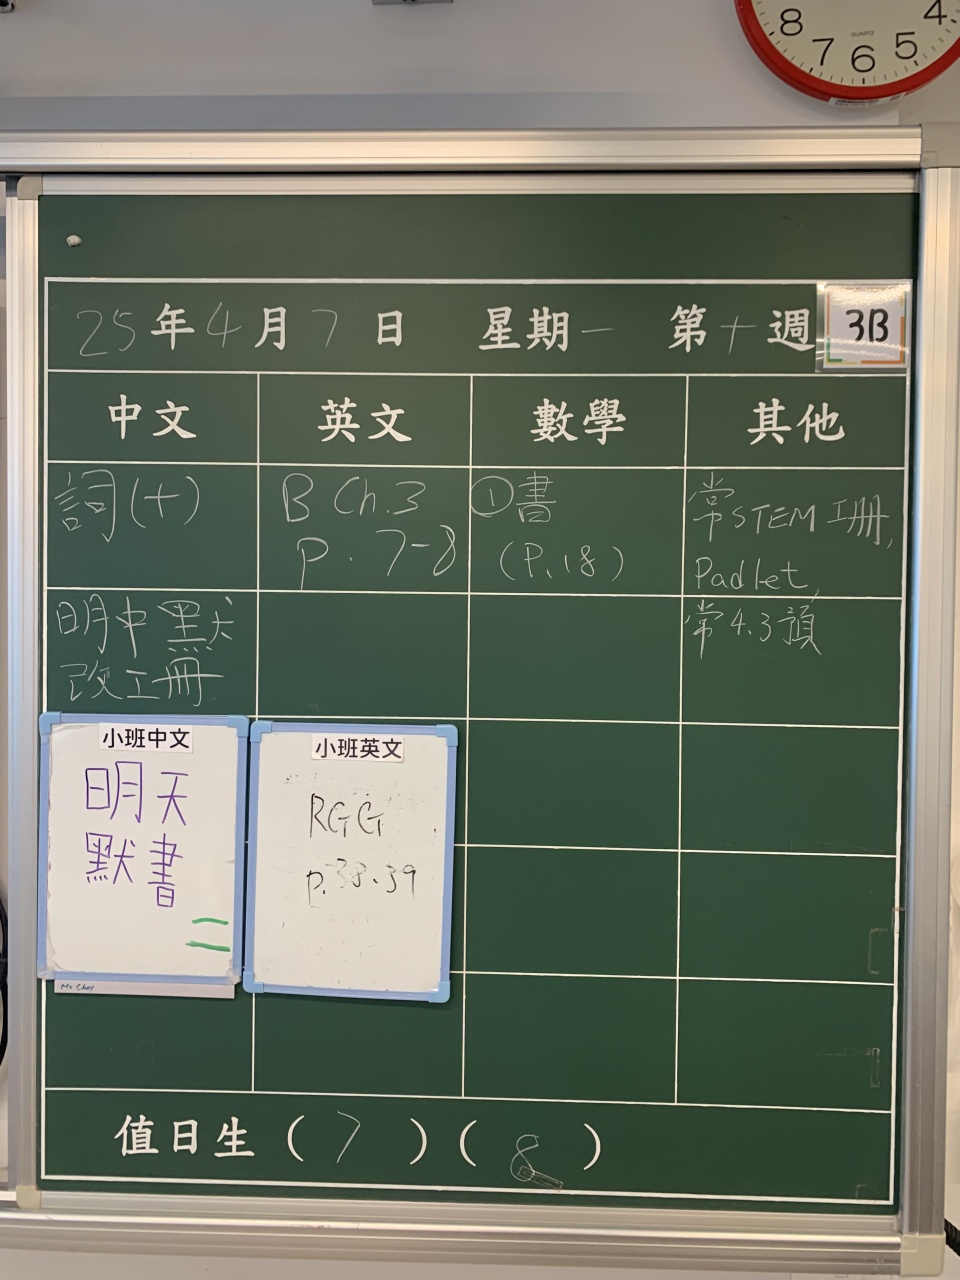 8 7 6 5 4
QUARTZ
25年4月7日 星期一 第十週 3B
中文 英文 數學 其他
詞(十)
B Ch.3
p. 7-8
①書
(P.18)
常STEM工冊,
Padlet,
常4.3預
明中默
改工冊
小班中文
明天
默書
二
Ms Choy
小班英文
RGG
p.38-39
值日生(7)(8)